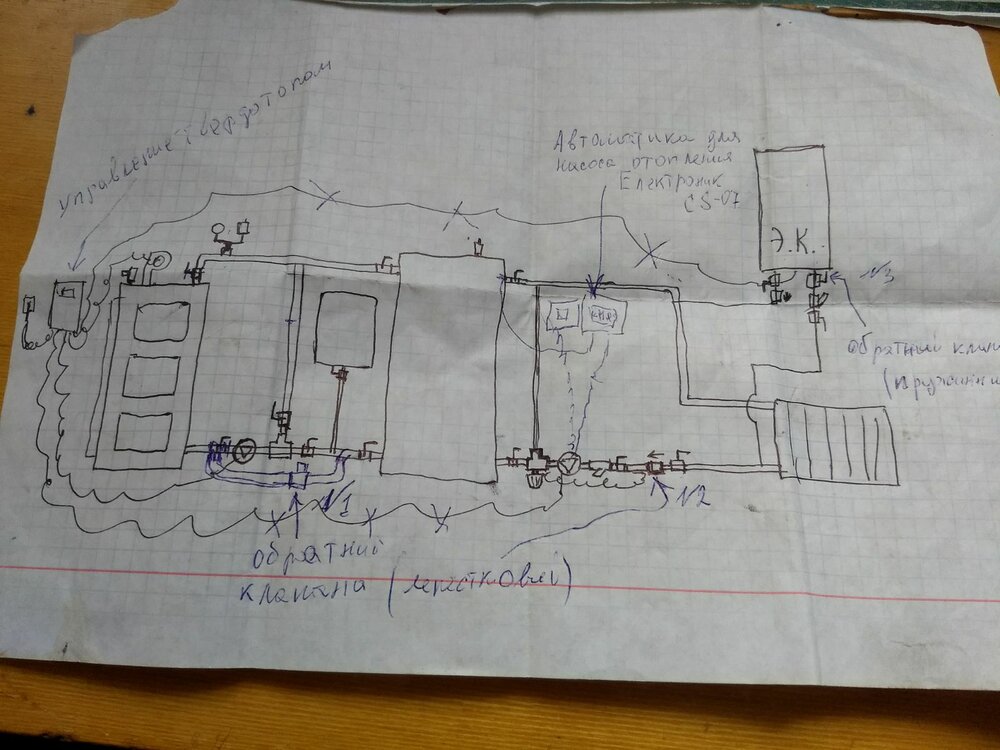 управление твердотопом
Автоматика для
насоса отопления
Електроник
CS-07
Э.К.
N3
обратный клап
(пружинн
N1
N2
обратний
клапана (лепестковый)